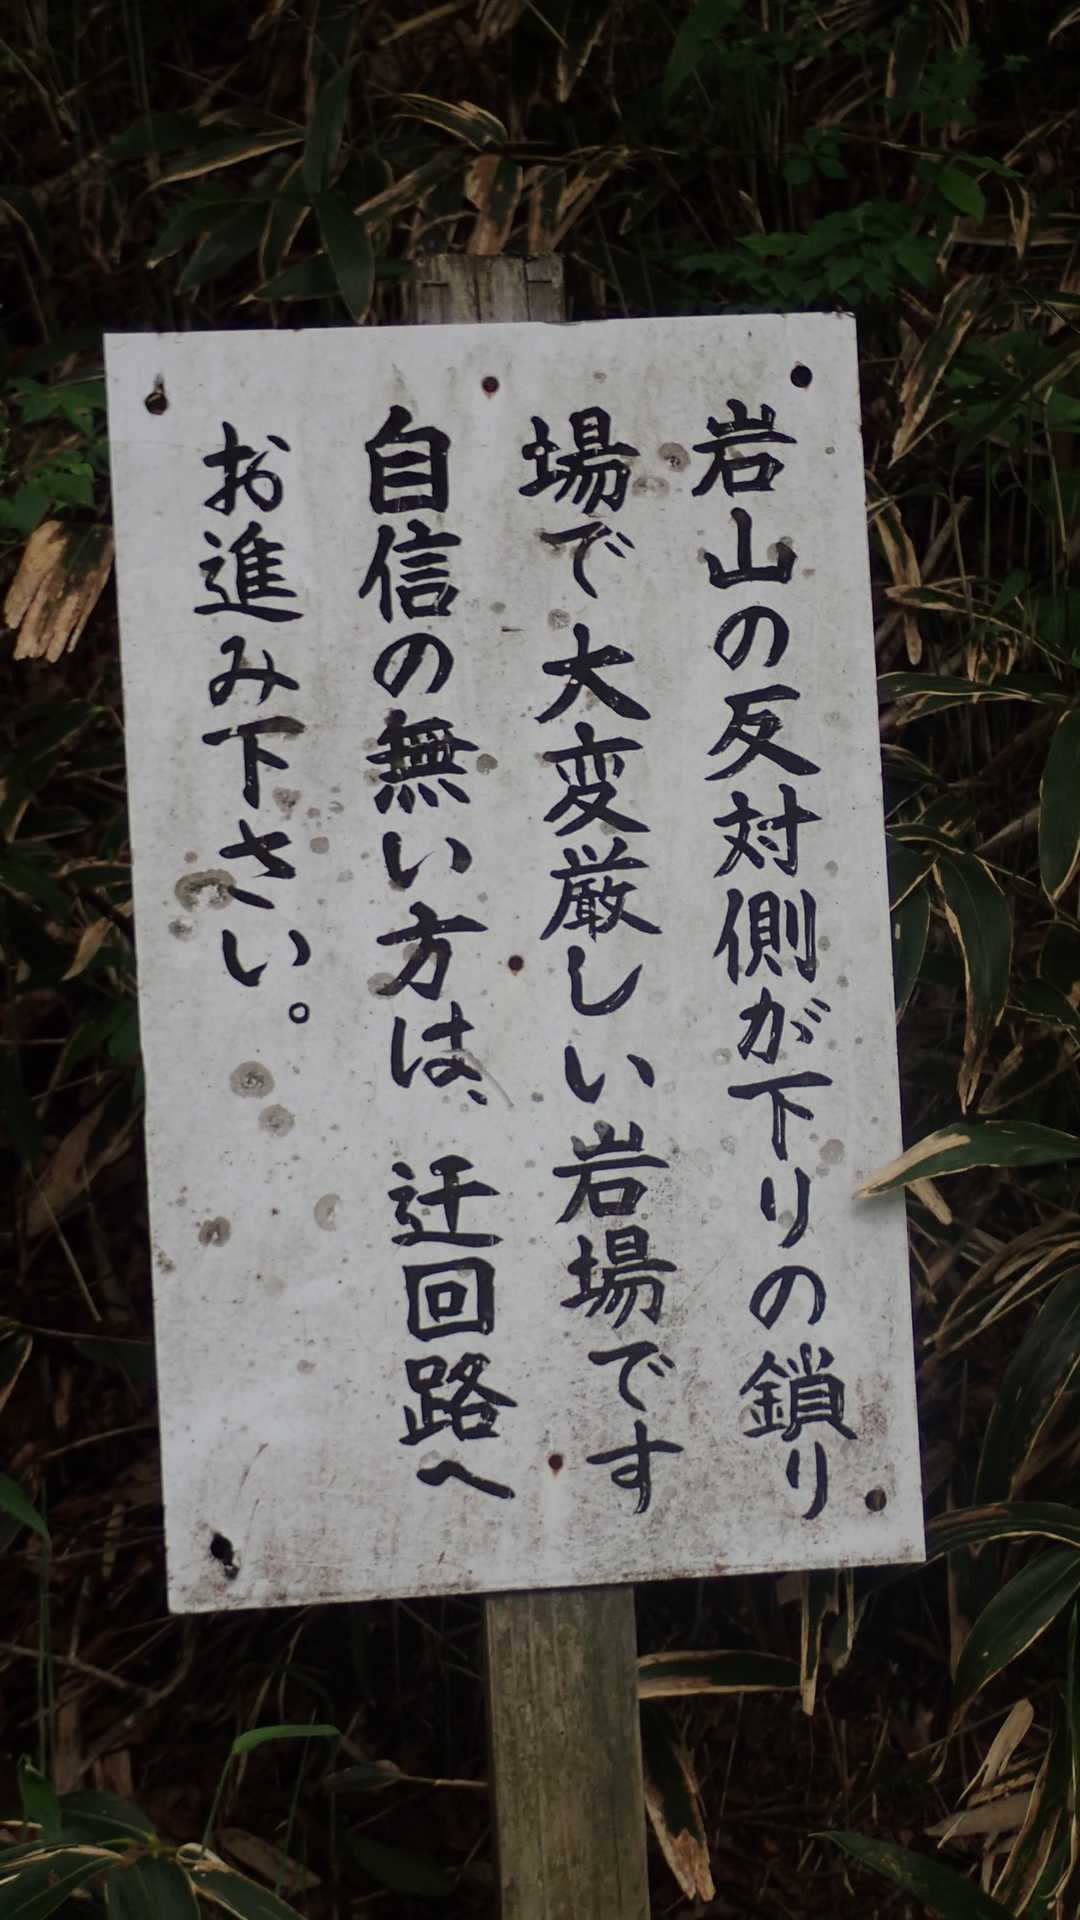 岩山の反対側が下りの鎖り
場で大変厳しい岩場です
自信の無い方は、迂回路へ
お進み下さい。